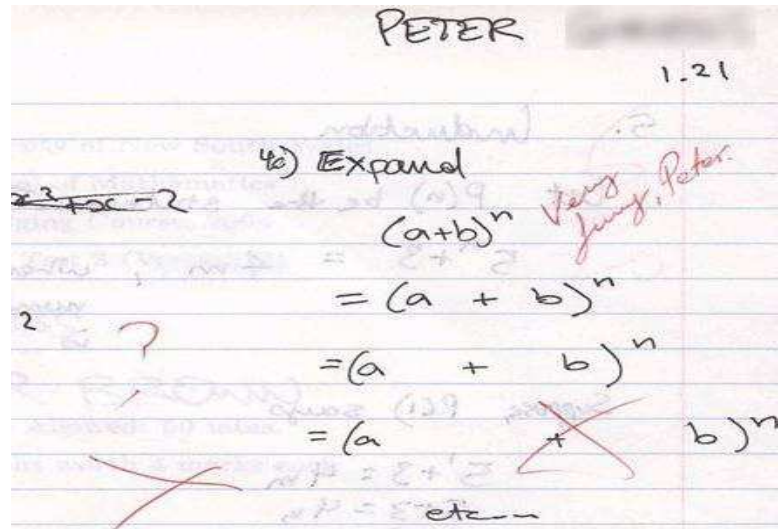 PETER
1.21
4c) Expand
x³+x-2
(a+b)ⁿ
Very funny, Peter.
= (a + b)ⁿ
2
?
= (a + b)ⁿ
= (a + b)ⁿ
etc...